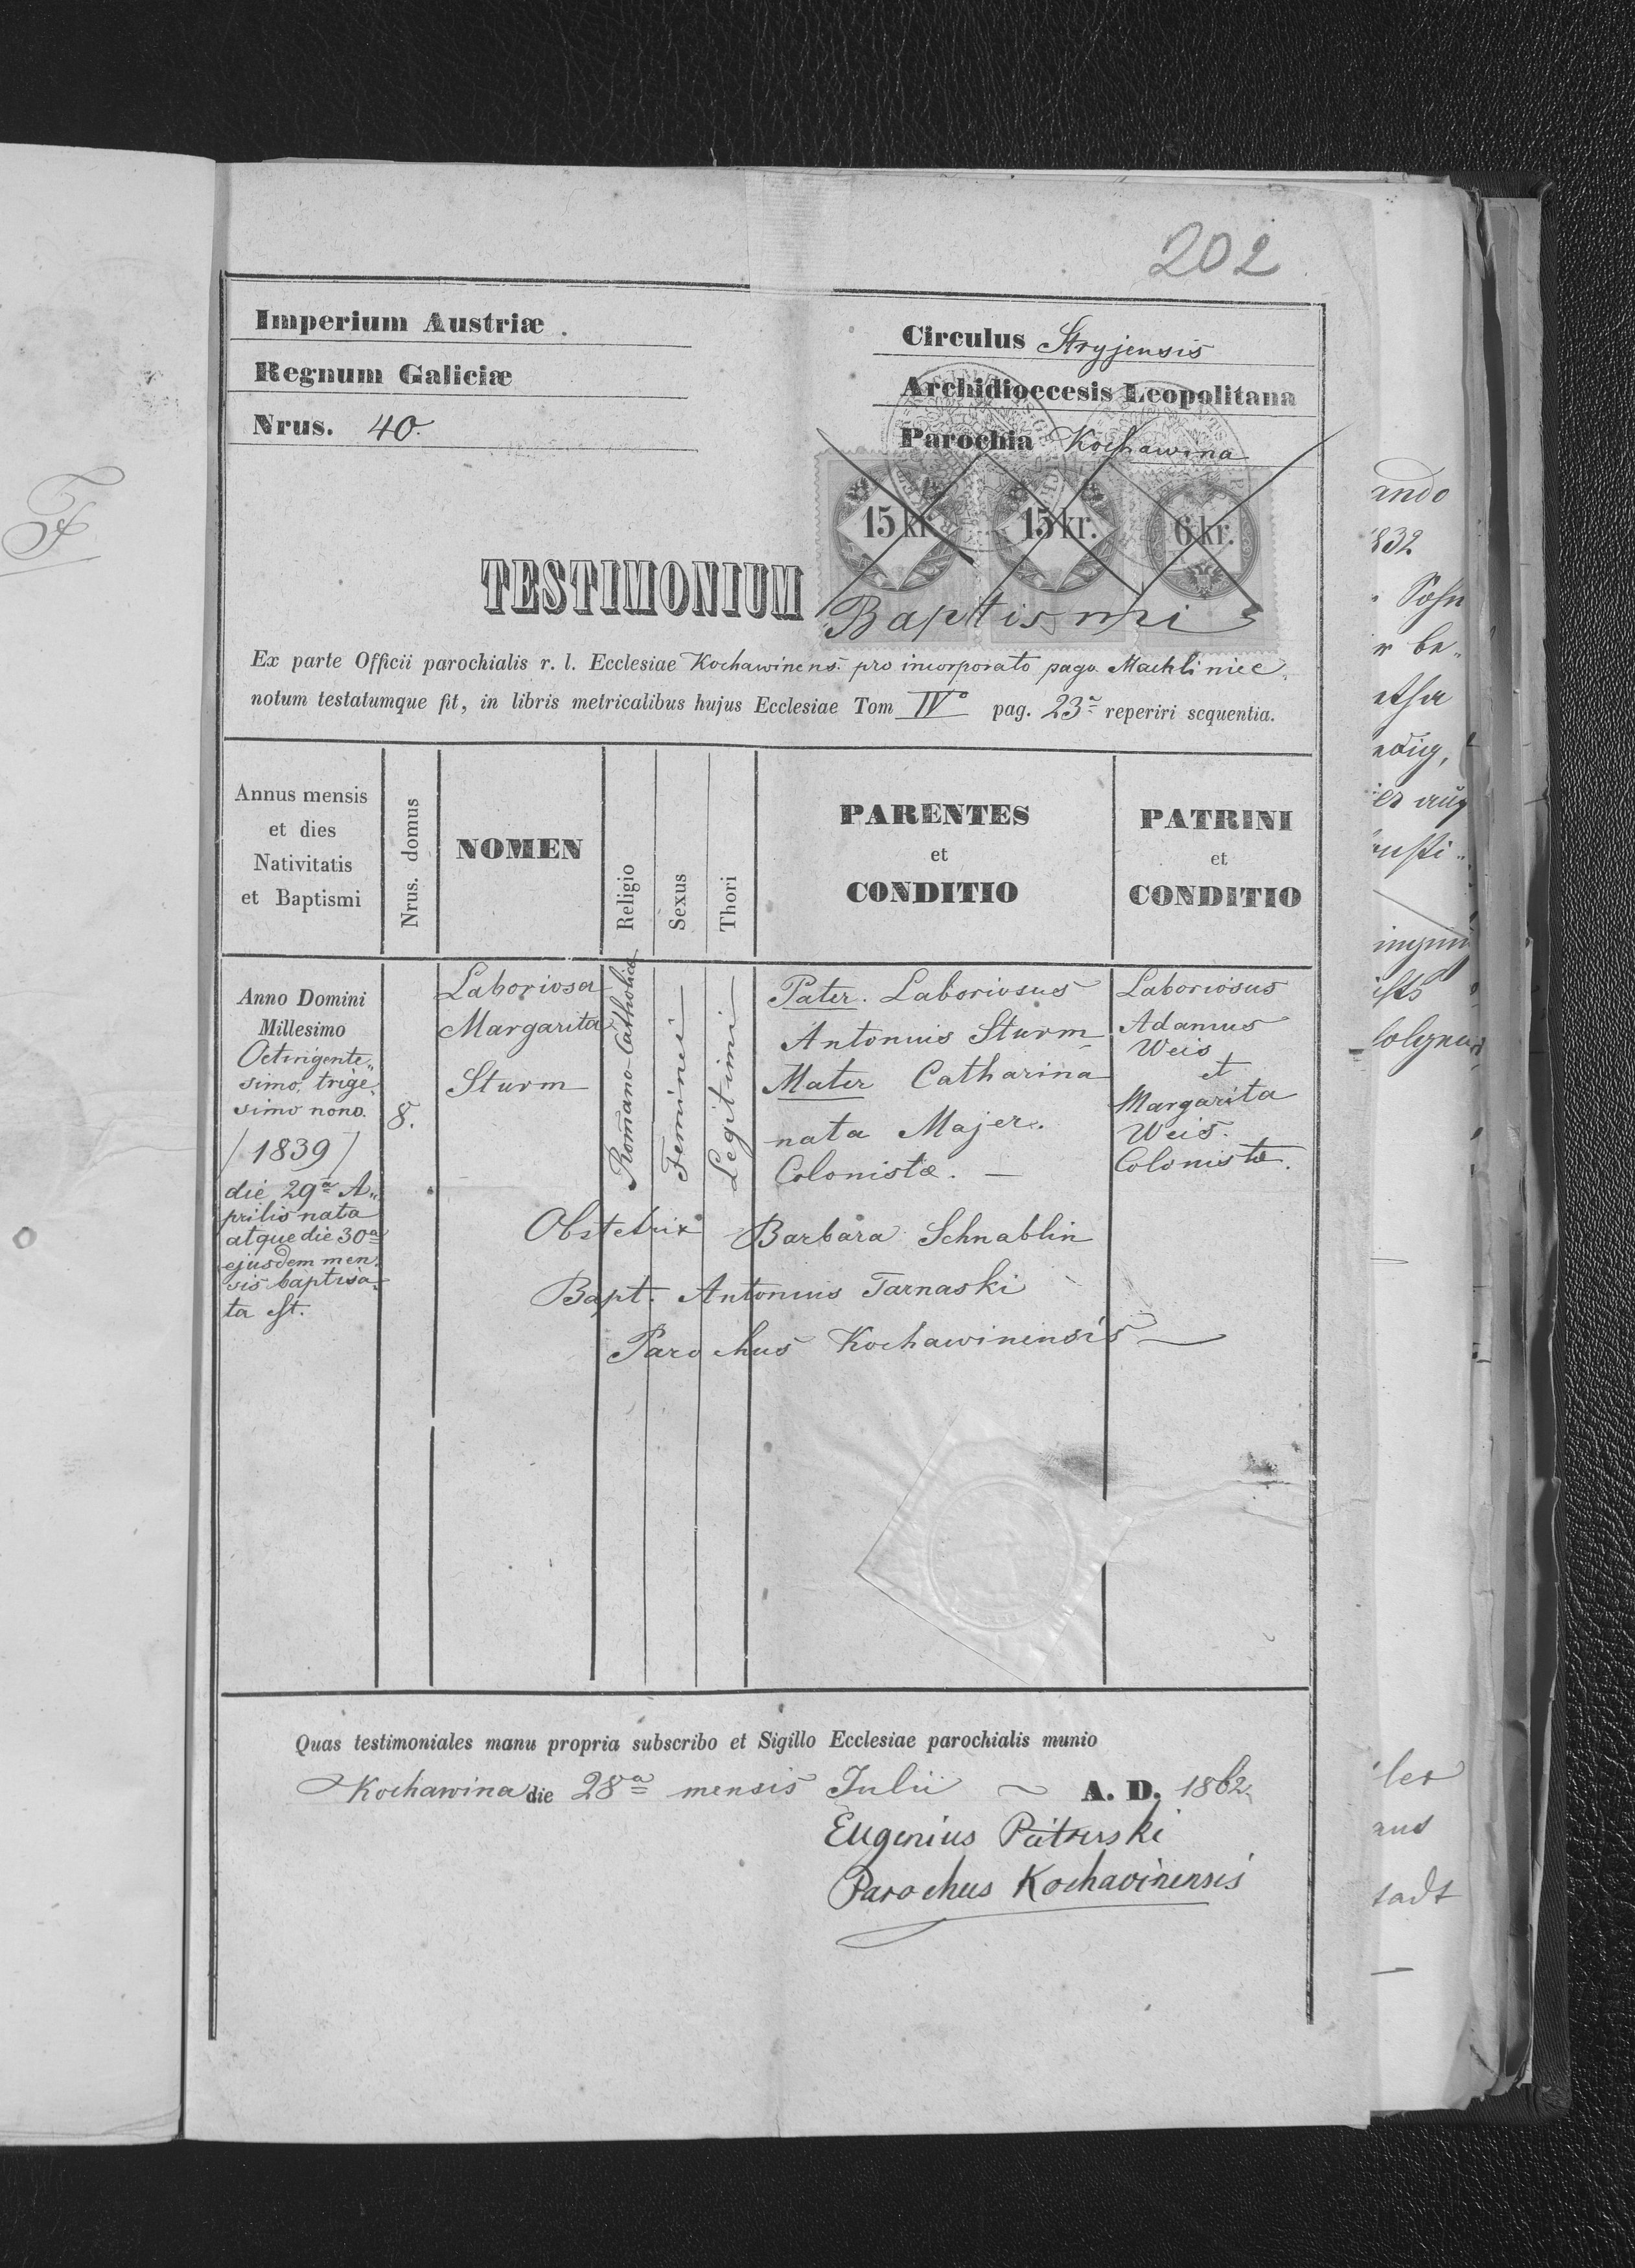 202
Imperium Austriæ
Circulus Stryjensis
Regnum Galiciæ
Archidioecesis Leopolitana
Nrus. 40.
Parochia Kochawina
15 kr. 15 kr. 6 kr.
TESTIMONIUM Baptismi
Ex parte Officii parochialis r. l. Ecclesiae Kochawinens. pro incorporato pago Machliniec
notum testatumque fit, in libris metricalibus hujus Ecclesiae Tom IVº pag. 23ª reperiri sequentia.
Annus mensis
et dies
Nativitatis
et Baptismi
Nrus. domus
NOMEN
Religio
Sexus
Thori
PARENTES
et
CONDITIO
PATRINI
et
CONDITIO
Anno Domini
Millesimo
Octingente„
simo, trige
simo nono.
/1839/
die 29ª A„
prilis nata
atque die 30ª
ejusdem men„
sis baptisa„
ta est.
8.
Laboriosa
Margarita
Sturm
Romano-Catholica
Feminei
Legitimi
Pater. Laboriosus
Antonius Sturm
Mater Catharina
nata Majer.
Colonistæ. —
Laboriosus
Adamus
Weis
et
Margarita
Weis.
Colonistæ.
Obstetrix Barbara Schnablin
Bapt. Antonius Tarnaski
Parochus Kochawinensis —
Quas testimoniales manu propria subscribo et Sigillo Ecclesiae parochialis munio
Kochawina die 28ª mensis Julii ~ A. D. 1862
Eugenius
Parochus Kochavinensis
F
ando
832
Sohn
aus
tadt